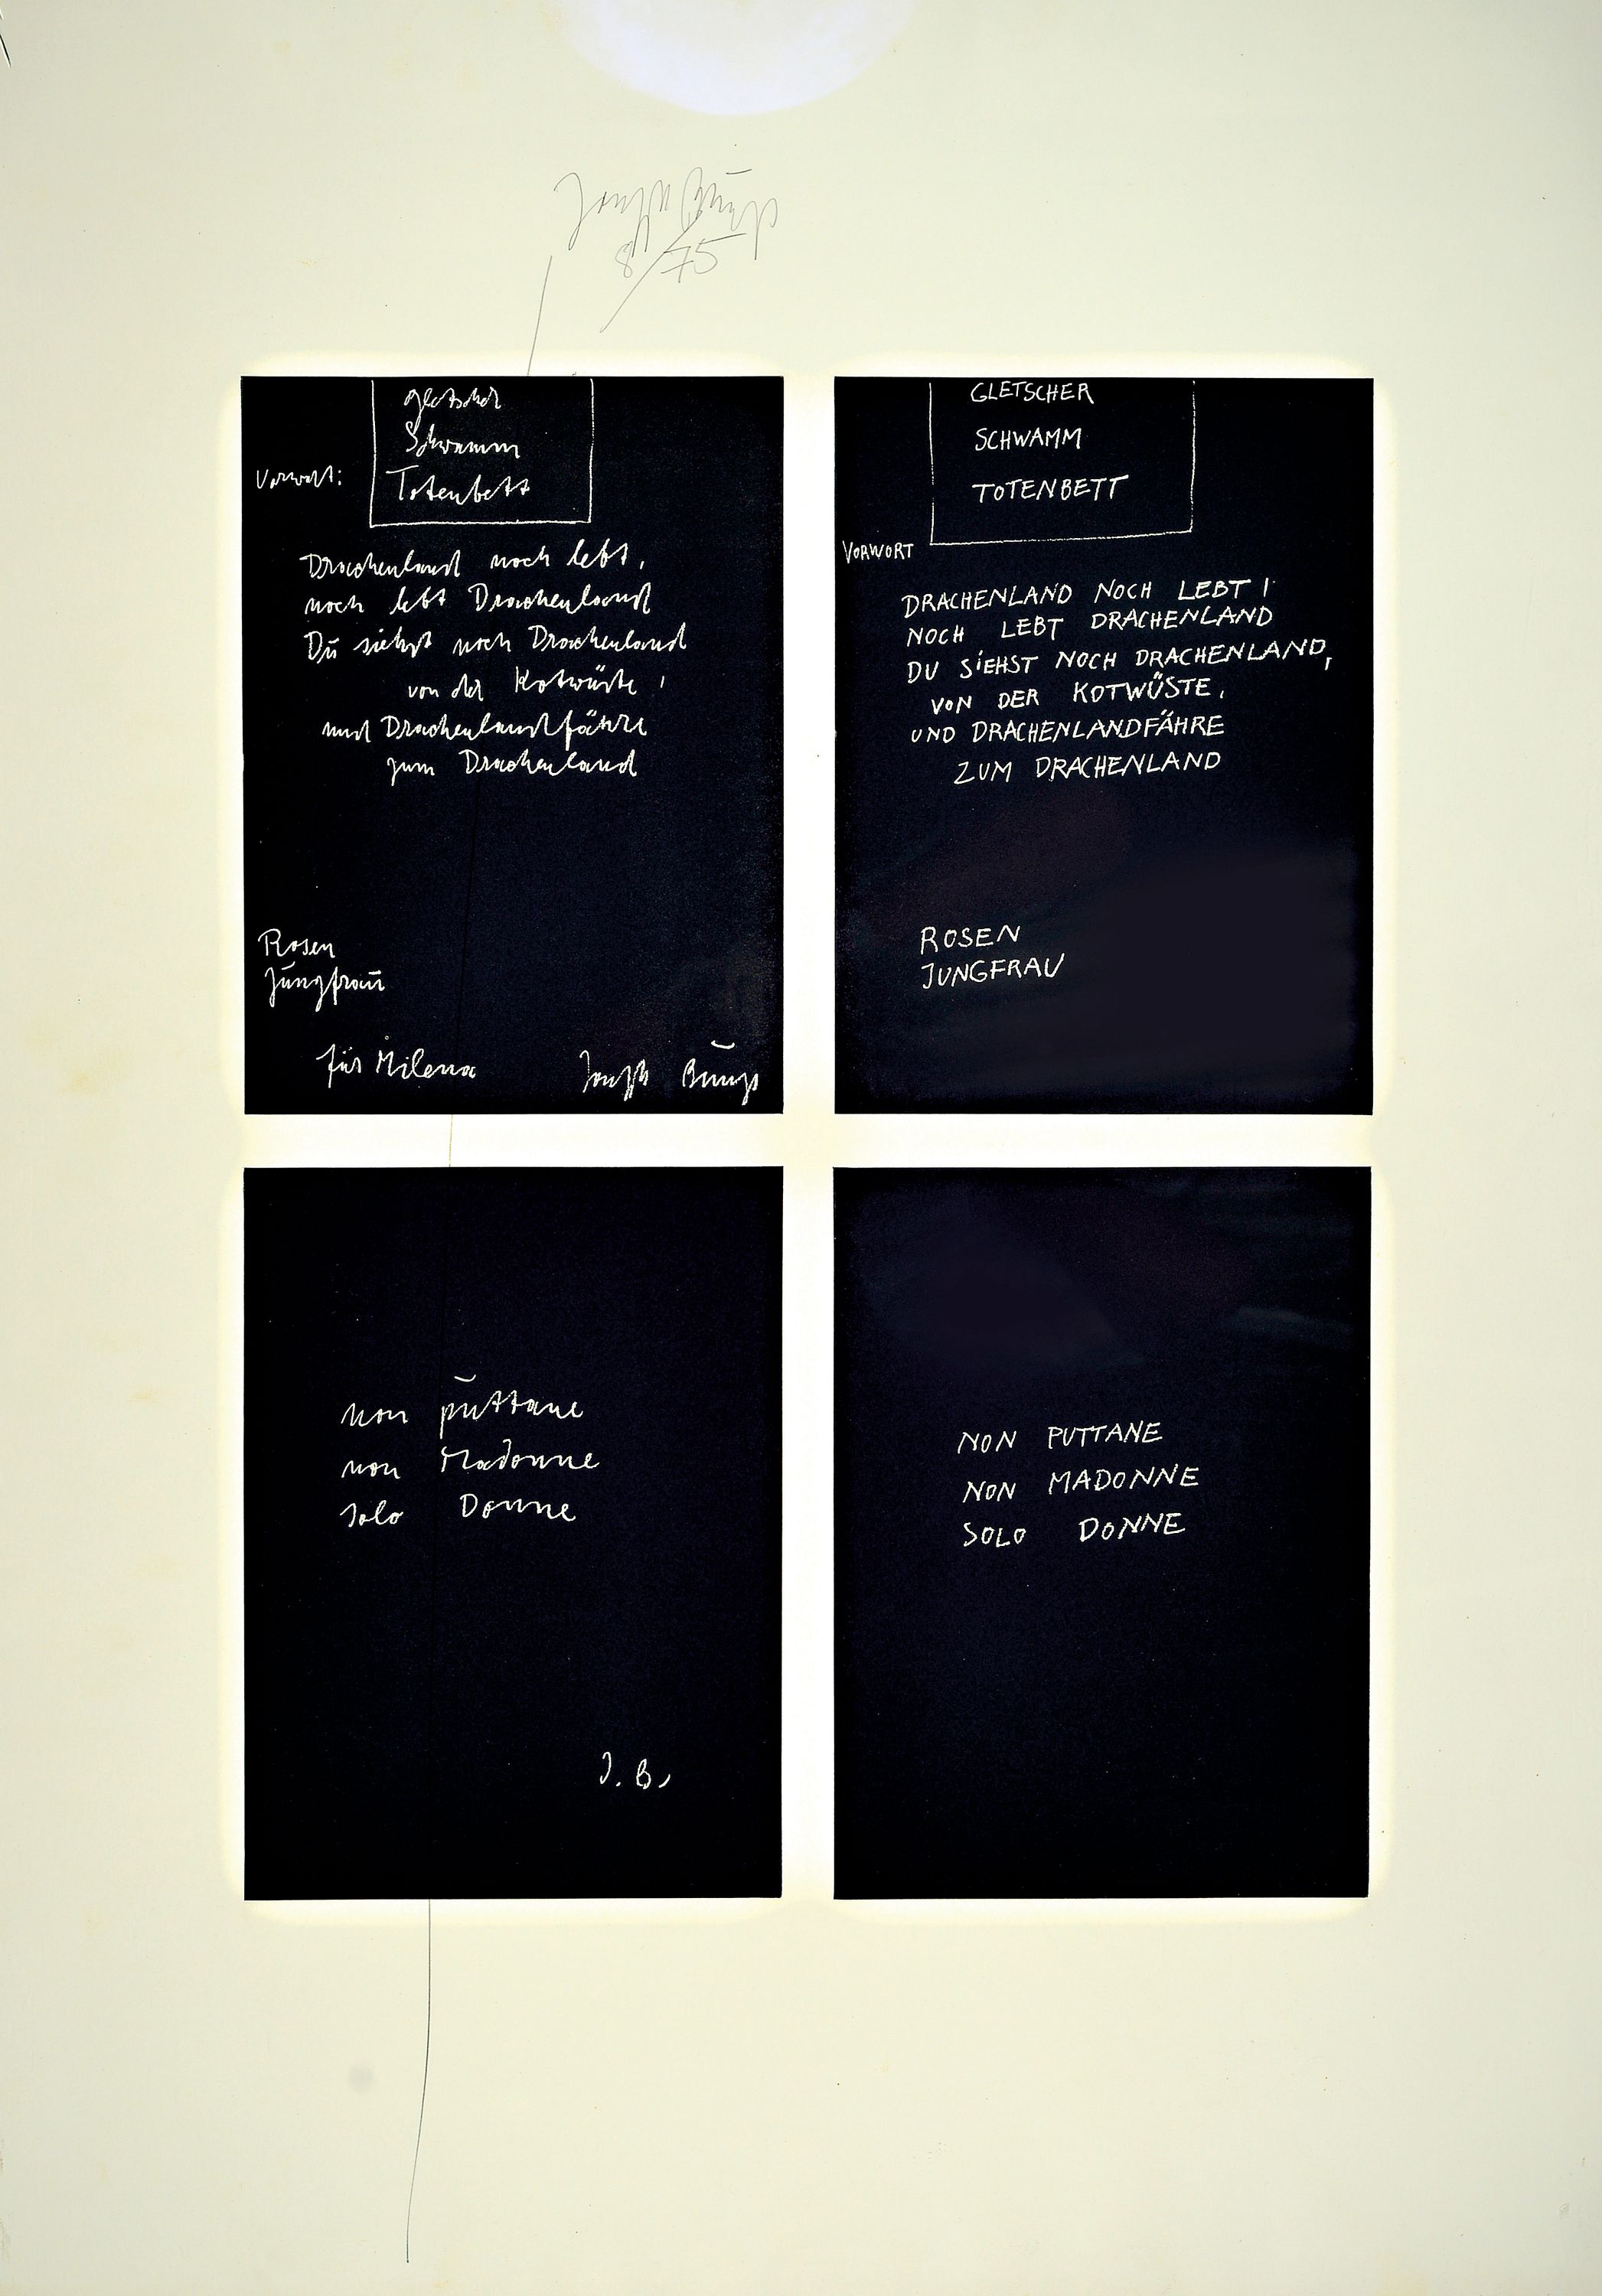 Joseph Beuys
8/75
gletscher
Schwamm
Vorwort:
Totenbett
Drachenland noch lebt,
noch lebt Drachenland
Du siehst noch Drachenland
von der Kotwüste,
und Drachenlandfähre
zum Drachenland
Rosen
Jungfrau
für Milena
Joseph Beuys
GLETSCHER
SCHWAMM
TOTENBETT
VORWORT
DRACHENLAND NOCH LEBT!
NOCH LEBT DRACHENLAND
DU SIEHST NOCH DRACHENLAND,
VON DER KOTWÜSTE,
UND DRACHENLANDFÄHRE
ZUM DRACHENLAND
ROSEN
JUNGFRAU
non puttane
non Madonne
solo Donne
J. B.
NON PUTTANE
NON MADONNE
SOLO DONNE